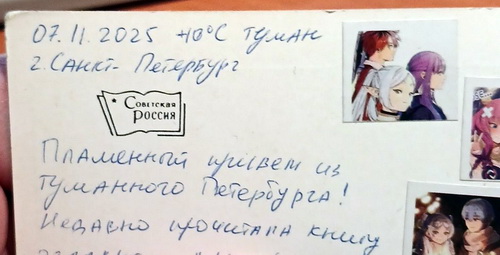 07.11.2025 +10°C туман
г. Санкт-Петербург
Советская
Россия
Пламенный привет из
туманного Петербурга!
Недавно прочитала книгу